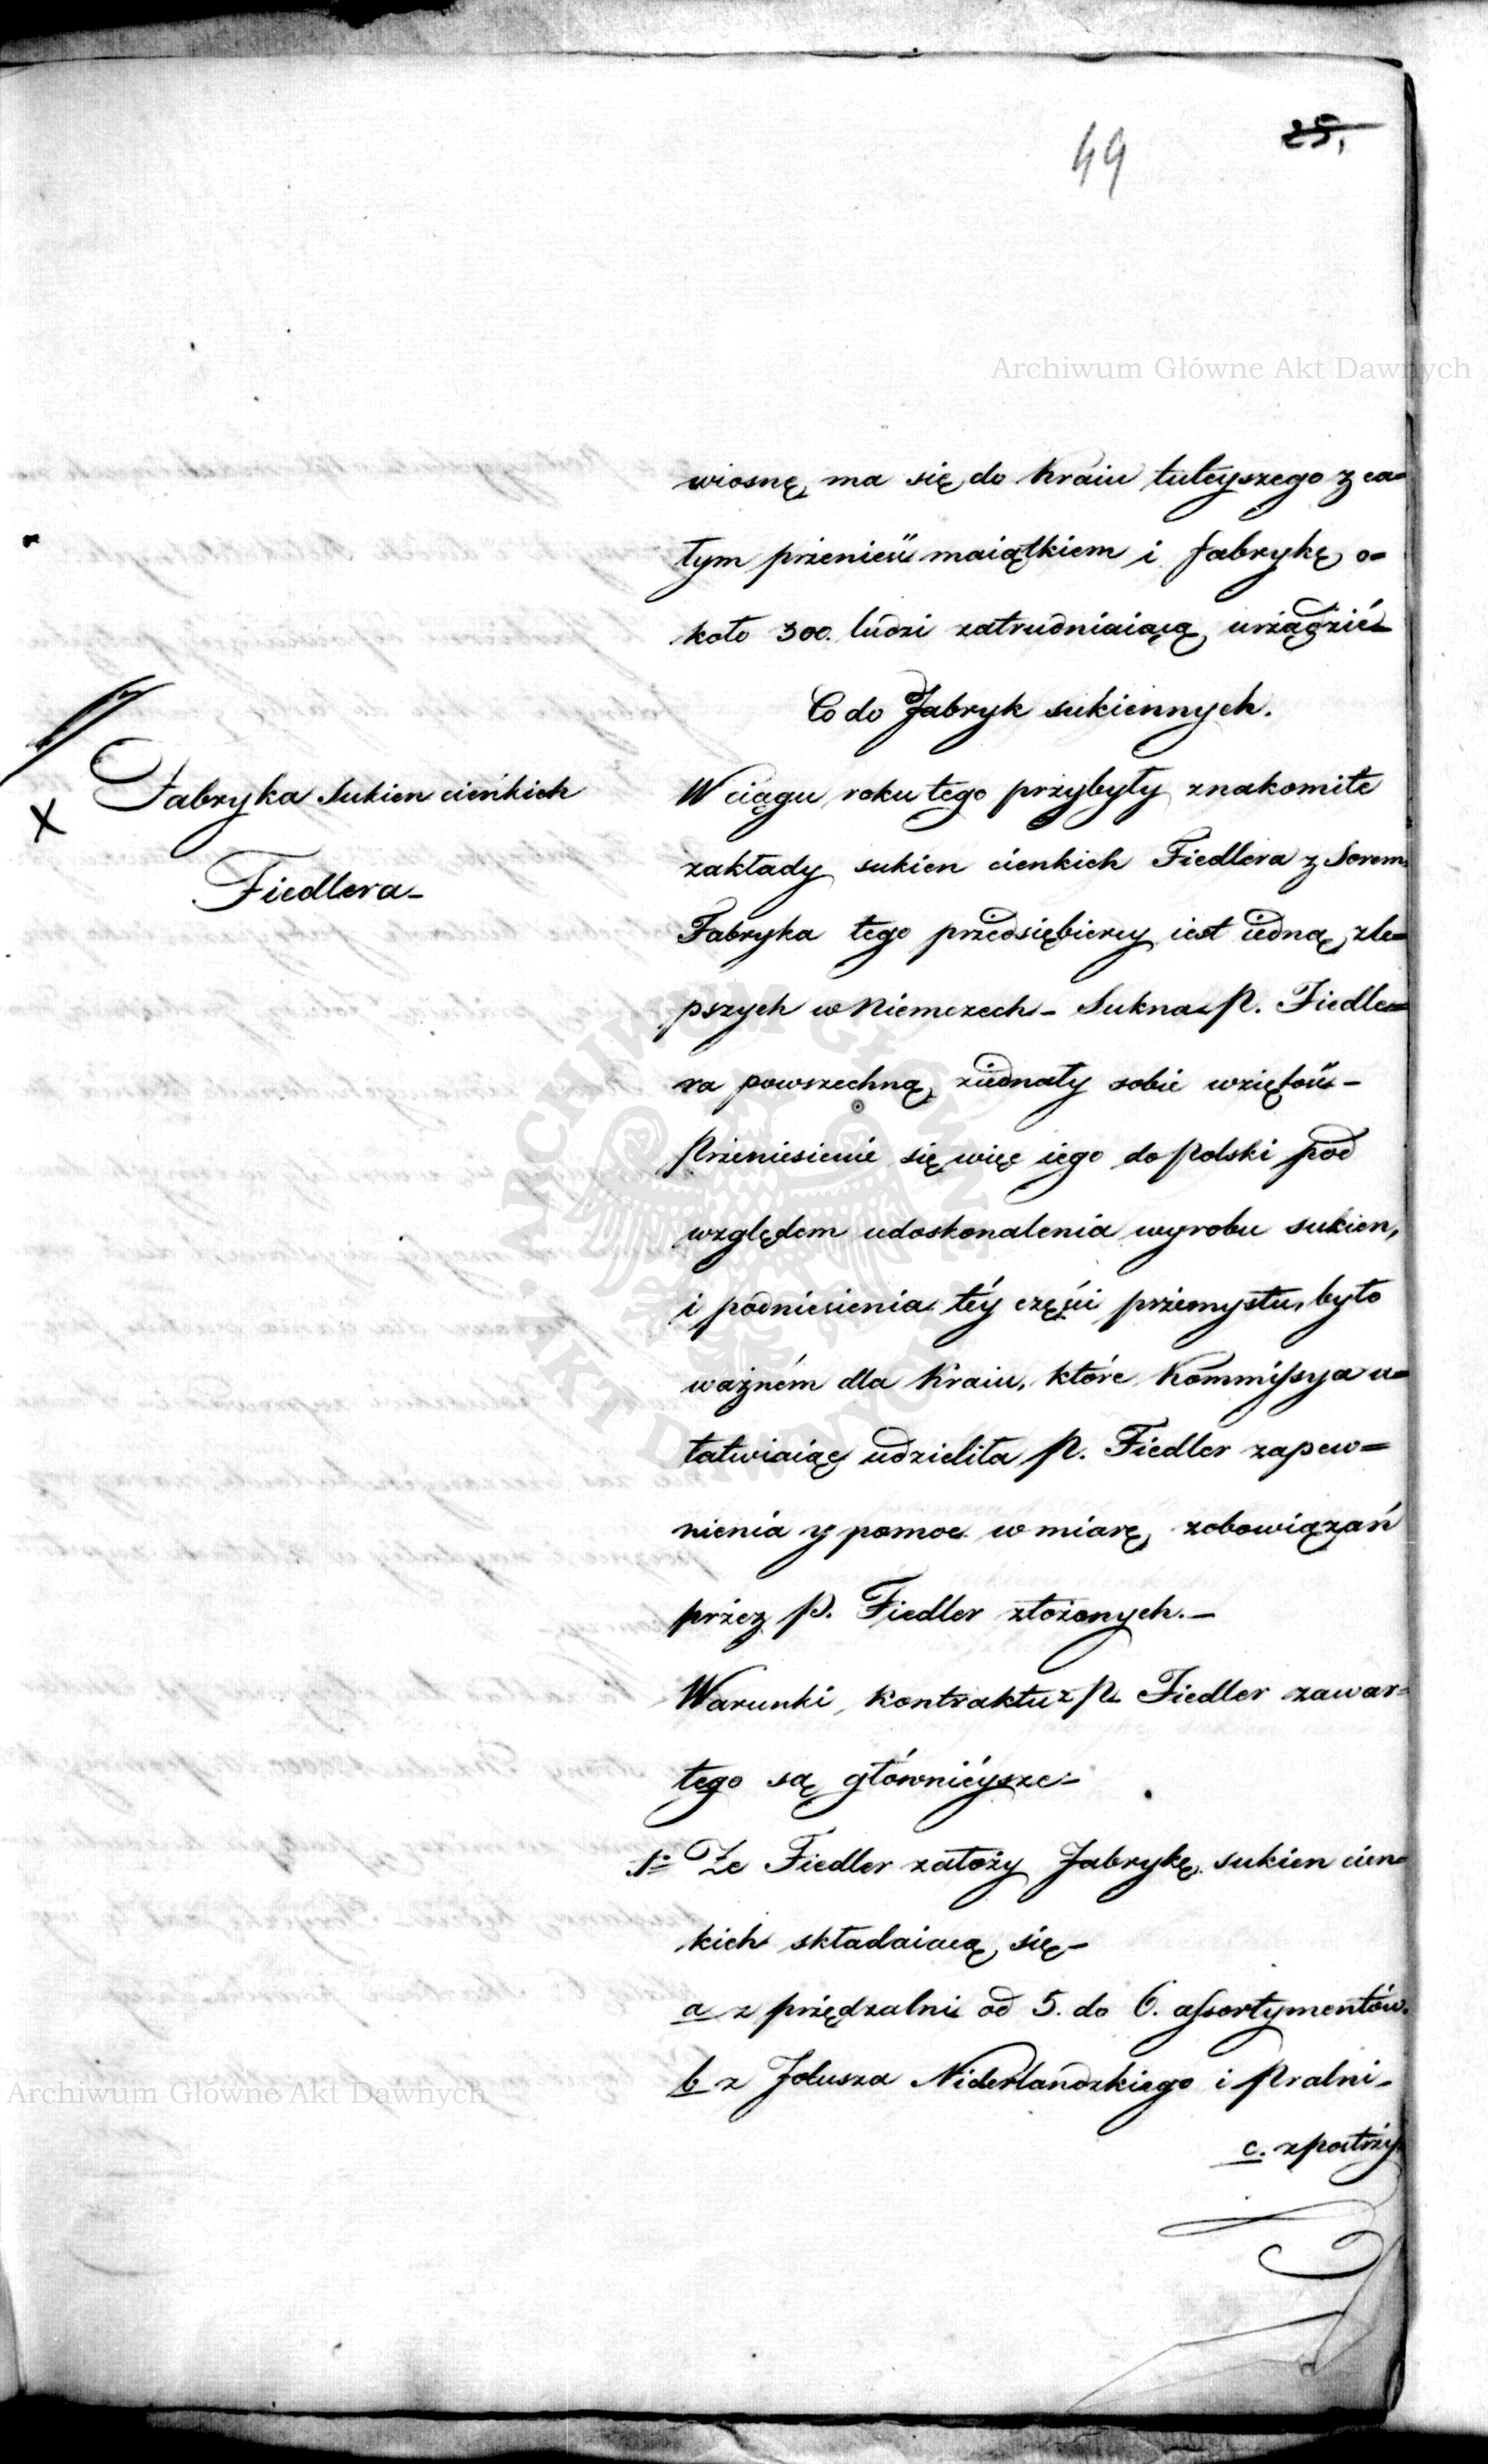 49
25,
Archiwum Główne Akt Dawnych
wiosnę ma się do Kraiu tuteyszego z ca=
łym przenieść maiątkiem i fabrykę o=
koło 300. ludzi zatrudniaiącą urządzić-
Co do Fabryk sukiennych.
Fabryka Sukien cieńkich
Fiedlera-
W ciągu roku tego przybyły znakomite
zakłady sukien cienkich Fiedlera z Sorem
Fabryka tego przedsiębiercy iest iedną zle=
pszych w Niemczech- Sukna P. Fiedle=
ra powszechną ziednały sobie wziętość-
Przeniesienie się więc iego do Polski pod
względem udoskonalenia wyrobu sukien,
i podniesienia téy części przemysłu, było
ważném dla Kraiu, które Kommissya u=
łatwiaiąc udzieliła P. Fiedler zapew=
nienia y pomoc w miarę zobowiązań
przez P. Fiedler złożonych.-
Warunki kontraktu z P. Fiedler zawar=
tego są główniéysze-
1° Ze Fiedler założy Fabrykę sukien cien=
kich składaiącą się-
a z przędzalni od 5. do 6. assortymentów.
b z Folusza Niderlandzkiego i Pralni-
c. z postrzy
ARCHIWUM GŁÓWNE AKT DAWNYCH
Archiwum Główne Akt Dawnych